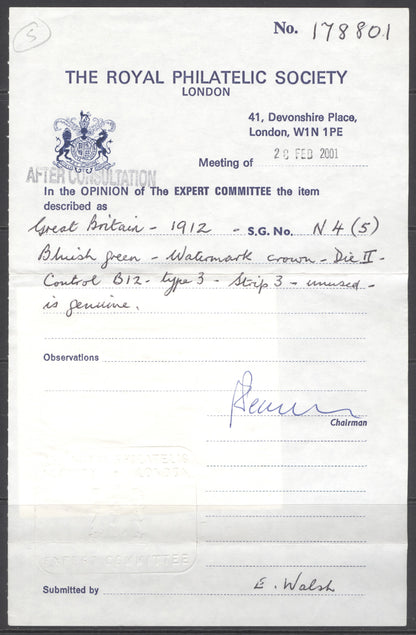 5
No. 178801
THE ROYAL PHILATELIC SOCIETY
LONDON
41, Devonshire Place,
London, W1N 1PE
Meeting of 28 FEB 2001
AFTER CONSULTATION
In the OPINION of The EXPERT COMMITTEE the item
described as
Great Britain - 1912 - S.G. No. N4 (5)
Bluish green - Watermark crown - Die II -
Control B12 - type 3 - Strip 3 - unused -
is genuine.
Observations
Chairman
PHILATELIC
LONDON
EXPERT COMMITTEE
Submitted by E. Walsh